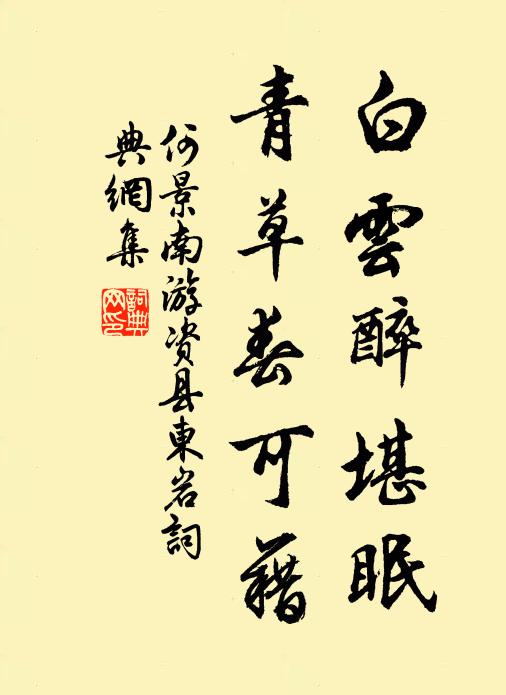 白雲醉堪眠
青草春可藉
何景南游资县東岩詞
典網集
詞典网印